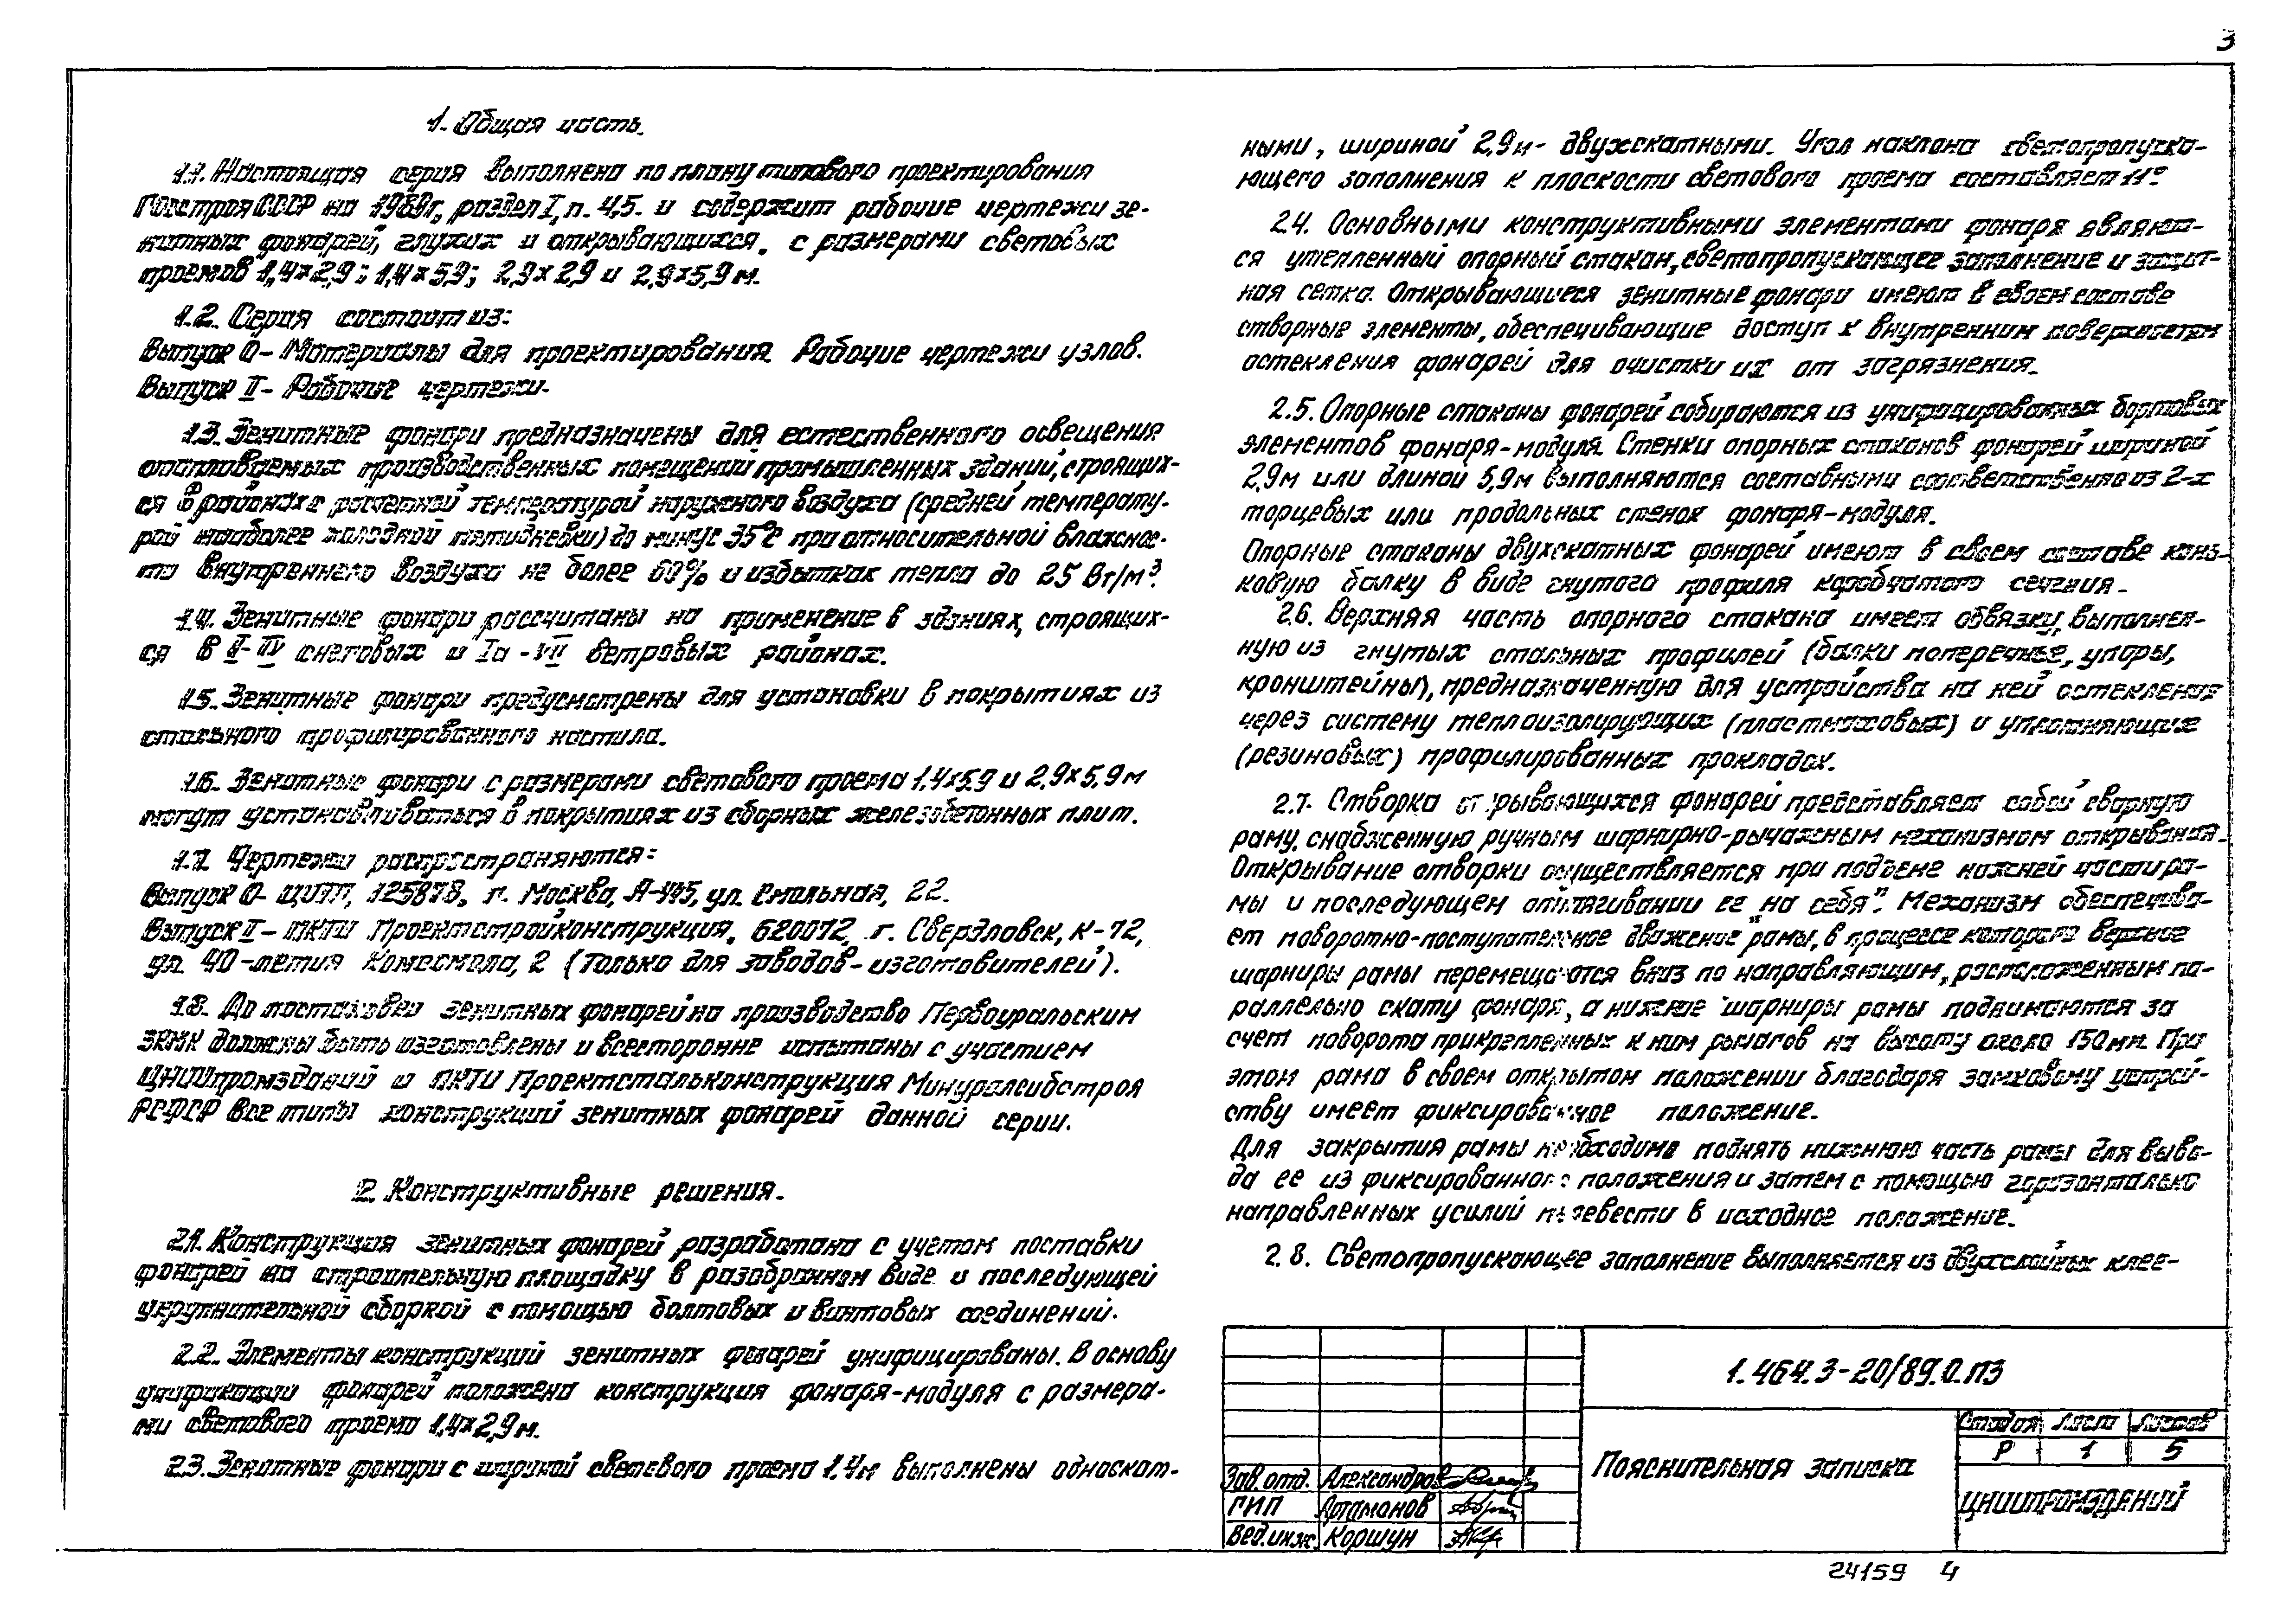 3
1. Общая часть.
1.1. Настоящая серия выполнена по плану типового проектирования
Госстроя СССР на 1989г, раздел I, п. 4.5. и содержит рабочие чертежи зе-
нитных фонарей, глухих и открывающихся, с размерами световых
проемов 1,4×2,9; 1,4×5,9; 2,9×2,9 и 2,9×5,9 м.
1.2. Серия состоит из:
Выпуск 0- Материалы для проектирования. Рабочие чертежи узлов.
Выпуск II- Рабочие чертежи.
1.3. Зенитные фонари предназначены для естественного освещения
отапливаемых производственных помещений промышленных зданий, строящих-
ся в районах с расчетной температурой наружного воздуха (средней температу-
рой наиболее холодной пятидневки) до минус 35°С при относительной влажнос-
ти внутреннего воздуха не более 60% и избытках тепла до 25 Вт/м³.
1.4. Зенитные фонари рассчитаны на применение в зданиях, строящих-
ся в I-IV снеговых и Iа-VII ветровых районах.
1.5. Зенитные фонари предусмотрены для установки в покрытиях из
стального профилированного настила.
1.6. Зенитные фонари с размерами светового проема 1,4×5,9 и 2,9×5,9 м
могут устанавливаться в покрытиях из сборных железобетонных плит.
1.7. Чертежи распространяются:
Выпуск 0- ЦИТП, 125878, г. Москва, А-445, ул. Смольная, 22.
Выпуск II- ПКТИ Проектстройконструкция, 620072, г. Свердловск, К-72,
ул. 40-летия Комсомола, 2 (только для заводов-изготовителей).
1.8. До постановки зенитных фонарей на производство Первоуральским
ЗКМК должны быть изготовлены и всесторонне испытаны с участием
ЦНИИпромзданий и ПКТИ Проектстальконструкция Минуралсибстроя
РСФСР все типы конструкций зенитных фонарей данной серии.
2. Конструктивные решения.
2.1. Конструкция зенитных фонарей разработана с учетом поставки
фонарей на строительную площадку в разобранном виде и последующей
укрупнительной сборкой с помощью болтовых и винтовых соединений.
2.2. Элементы конструкций зенитных фонарей унифицированы. В основу
унификации фонарей положена конструкция фонаря-модуля с размера-
ми светового проема 1,4×2,9 м.
2.3. Зенитные фонари с шириной светового проема 1,4м выполнены односкат-
ными, шириной 2,9м- двухскатными. Угол наклона светопропуска-
ющего заполнения к плоскости светового проема составляет 11°
2.4. Основными конструктивными элементами фонаря являют-
ся утепленный опорный стакан, светопропускающее заполнение и защит-
ная сетка. Открывающиеся зенитные фонари имеют в своем составе
створные элементы, обеспечивающие доступ к внутренним поверхностям
остекления фонарей для очистки их от загрязнения.
2.5. Опорные стаканы фонарей собираются из унифицированных бортовых
элементов фонаря-модуля. Стенки опорных стаканов фонарей шириной
2,9м или длиной 5,9м выполняются составными соответственно из 2-х
торцевых или продольных стенок фонаря-модуля.
Опорные стаканы двухскатных фонарей имеют в своем составе конь-
ковую балку в виде гнутого профиля коробчатого сечения.
2.6. Верхняя часть опорного стакана имеет обвязку, выполнен-
ную из гнутых стальных профилей (балки поперечные, упоры,
кронштейны), предназначенную для устройства на ней остекления
через систему теплоизолирующих (пластмассовых) и уплотняющих
(резиновых) профилированных прокладок.
2.7. Створка открывающихся фонарей представляет собой сварную
раму, снабженную ручным шарнирно-рычажным механизмом открывания.
Открывание створки осуществляется при подъеме нижней части ра-
мы и последующем оттягивании ее „на себя". Механизм обеспечива-
ет поворотно-поступательное движение рамы, в процессе которого верхние
шарниры рамы перемещаются вниз по направляющим, расположенным па-
раллельно скату фонаря, а нижние шарниры рамы поднимаются за
счет поворота прикрепленных к ним рычагов на высоту около 150мм. При
этом рама в своем открытом положении благодаря замковому устрой-
ству имеет фиксированное положение.
Для закрытия рамы необходимо поднять нижнюю часть рамы для выво-
да ее из фиксированного положения и затем с помощью горизонтально
направленных усилий перевести в исходное положение.
2.8. Светопропускающее заполнение выполняется из двухслойных клее-
1.464.3-20/89.0.ПЗ
Пояснительная записка
Стадия Лист Листов
Р 1 5
ЦНИИПРОМЗДАНИЙ
Зав. отд. Александров
ГИП Артамонов
Вед. инж. Коршун
24159 4